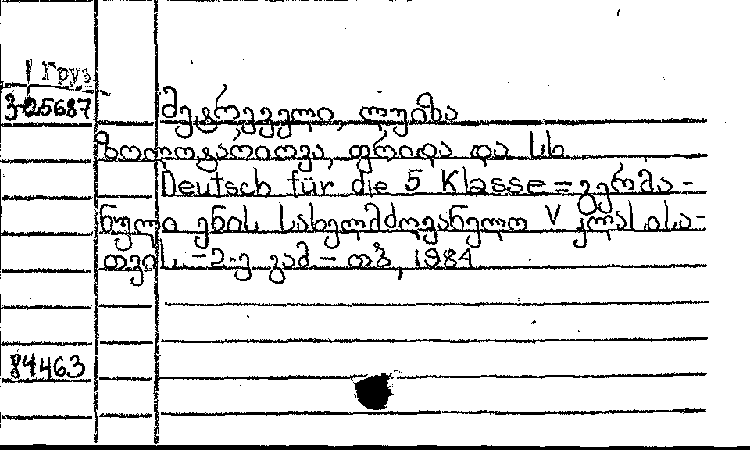 1 Груз
3-25687
მეტრეველი, ლუიზა
ზოლოტარიოვა, ფრიდა და სხ.
Deutsch für die 5 Klasse = გერმა-
ნული ენის სახელმძღვანელო V კლასისა-
თვის. - 2-ე გამ - თბ, 1984
84463